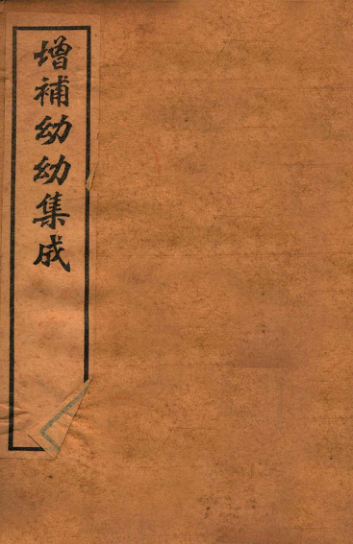 增補幼幼集成